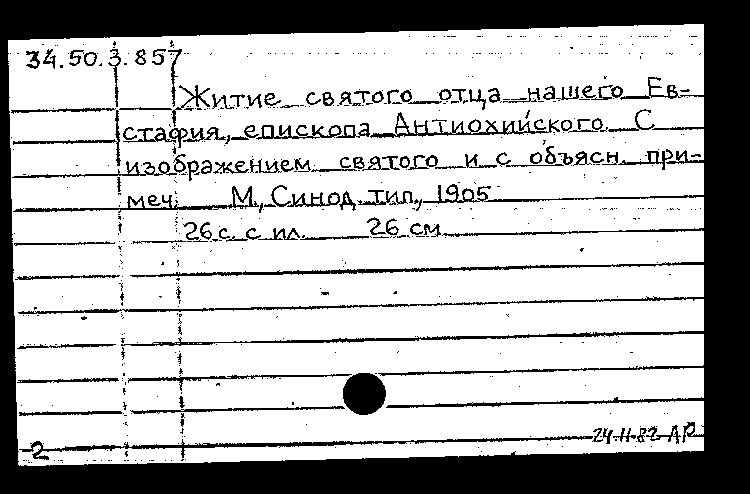 34.50.3.857
Житие святого отца нашего Ев-
стафия, епископа Антиохийского. С
изображением святого и с объясн. при-
меч. М., Синод. тип., 1905
26 с. с ил. 26 см.
24.11.82 АР
2